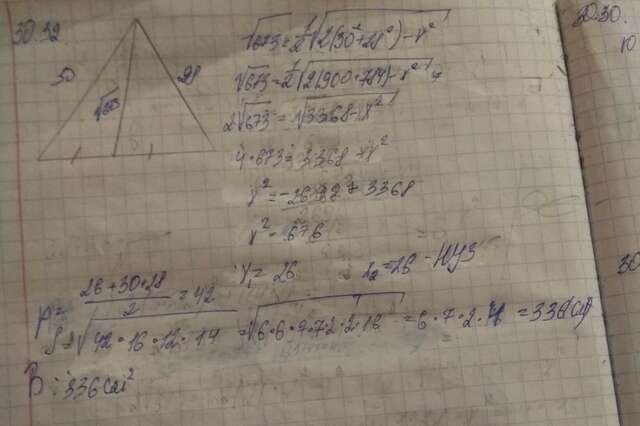 30.32
30
28
√673
√673 = 1/2 √2(30²+28²)-x²
√673 = 1/2 √2(900+784)-x²
2√673 = √3368-x²
4·673 = 3368-x²
x² = -2692+3368
x² = 676
x₁ = 26
x₂ = -26
p = (26+30+28)/2 = 42
S = √42·16·12·14 = √6·6·7·7·2·2·16 = 6·7·2·4 = 336(см²)
В: 336см²
30.30.
30